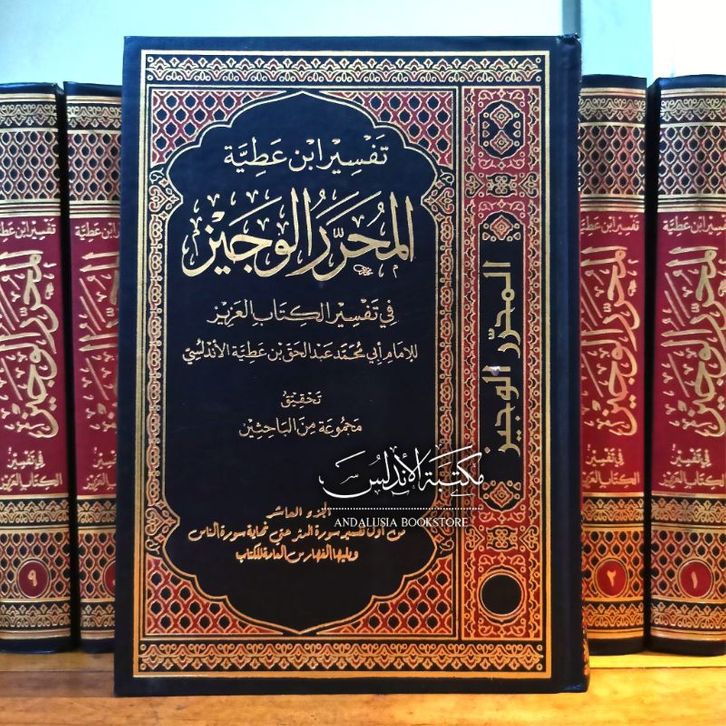 تَفْسِيْر ابْن عَطِيَّة
المُحَرَّرُ الوَجِيْز
فِي تَفْسِيْرِ الكِتَابِ العَزِيْز
لِلإمَام أبِي مُحَمَّد عَبْد الحَقّ بْن عَطِيَّة الأَنْدَلُسِي
تَحْقِيْق
مَجْمُوعَة مِنَ البَاحِثِيْن
مكتبة الأندلس
ANDALUSIA BOOKSTORE
الجزء العاشر
من أول تفسير سورة المدثر حتى نهاية سورة الناس
ويليها الفهارس العامة للكتاب
المحرّر الوجيز
تفسير ابن عطية
المحرر الوجيز
في تفسير
الكتاب العزيز
٩
تفسير ابن عطية
المحرر الوجيز
في تفسير
الكتاب العزيز
٢
تفسير ابن عطية
المحرر الوجيز
في تفسير
الكتاب العزيز
١